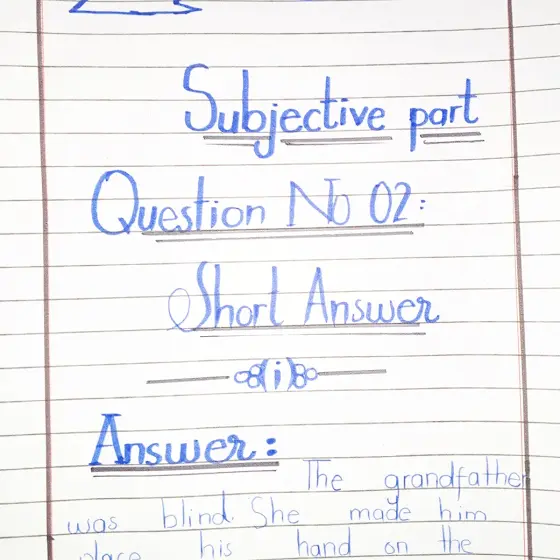 Subjective part
Question No 02:
Short Answer
(i)
Answer:
The grandfather
was blind. She made him
place his hand on the